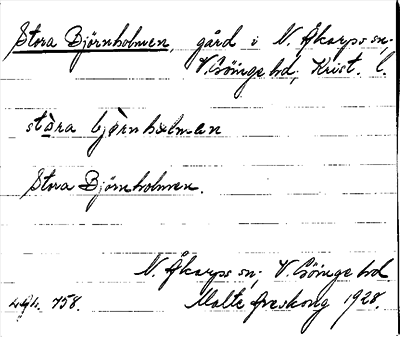 Stora Björnholmen, gård i N. Åkarps sn,
V. Göinge hd, Krist. l.
stòra bjö̀rnhɷlmen
Stora Björnholmen.
N. Åkarps sn, V. Göinge hd.
758. Malte Areskoug 1928.